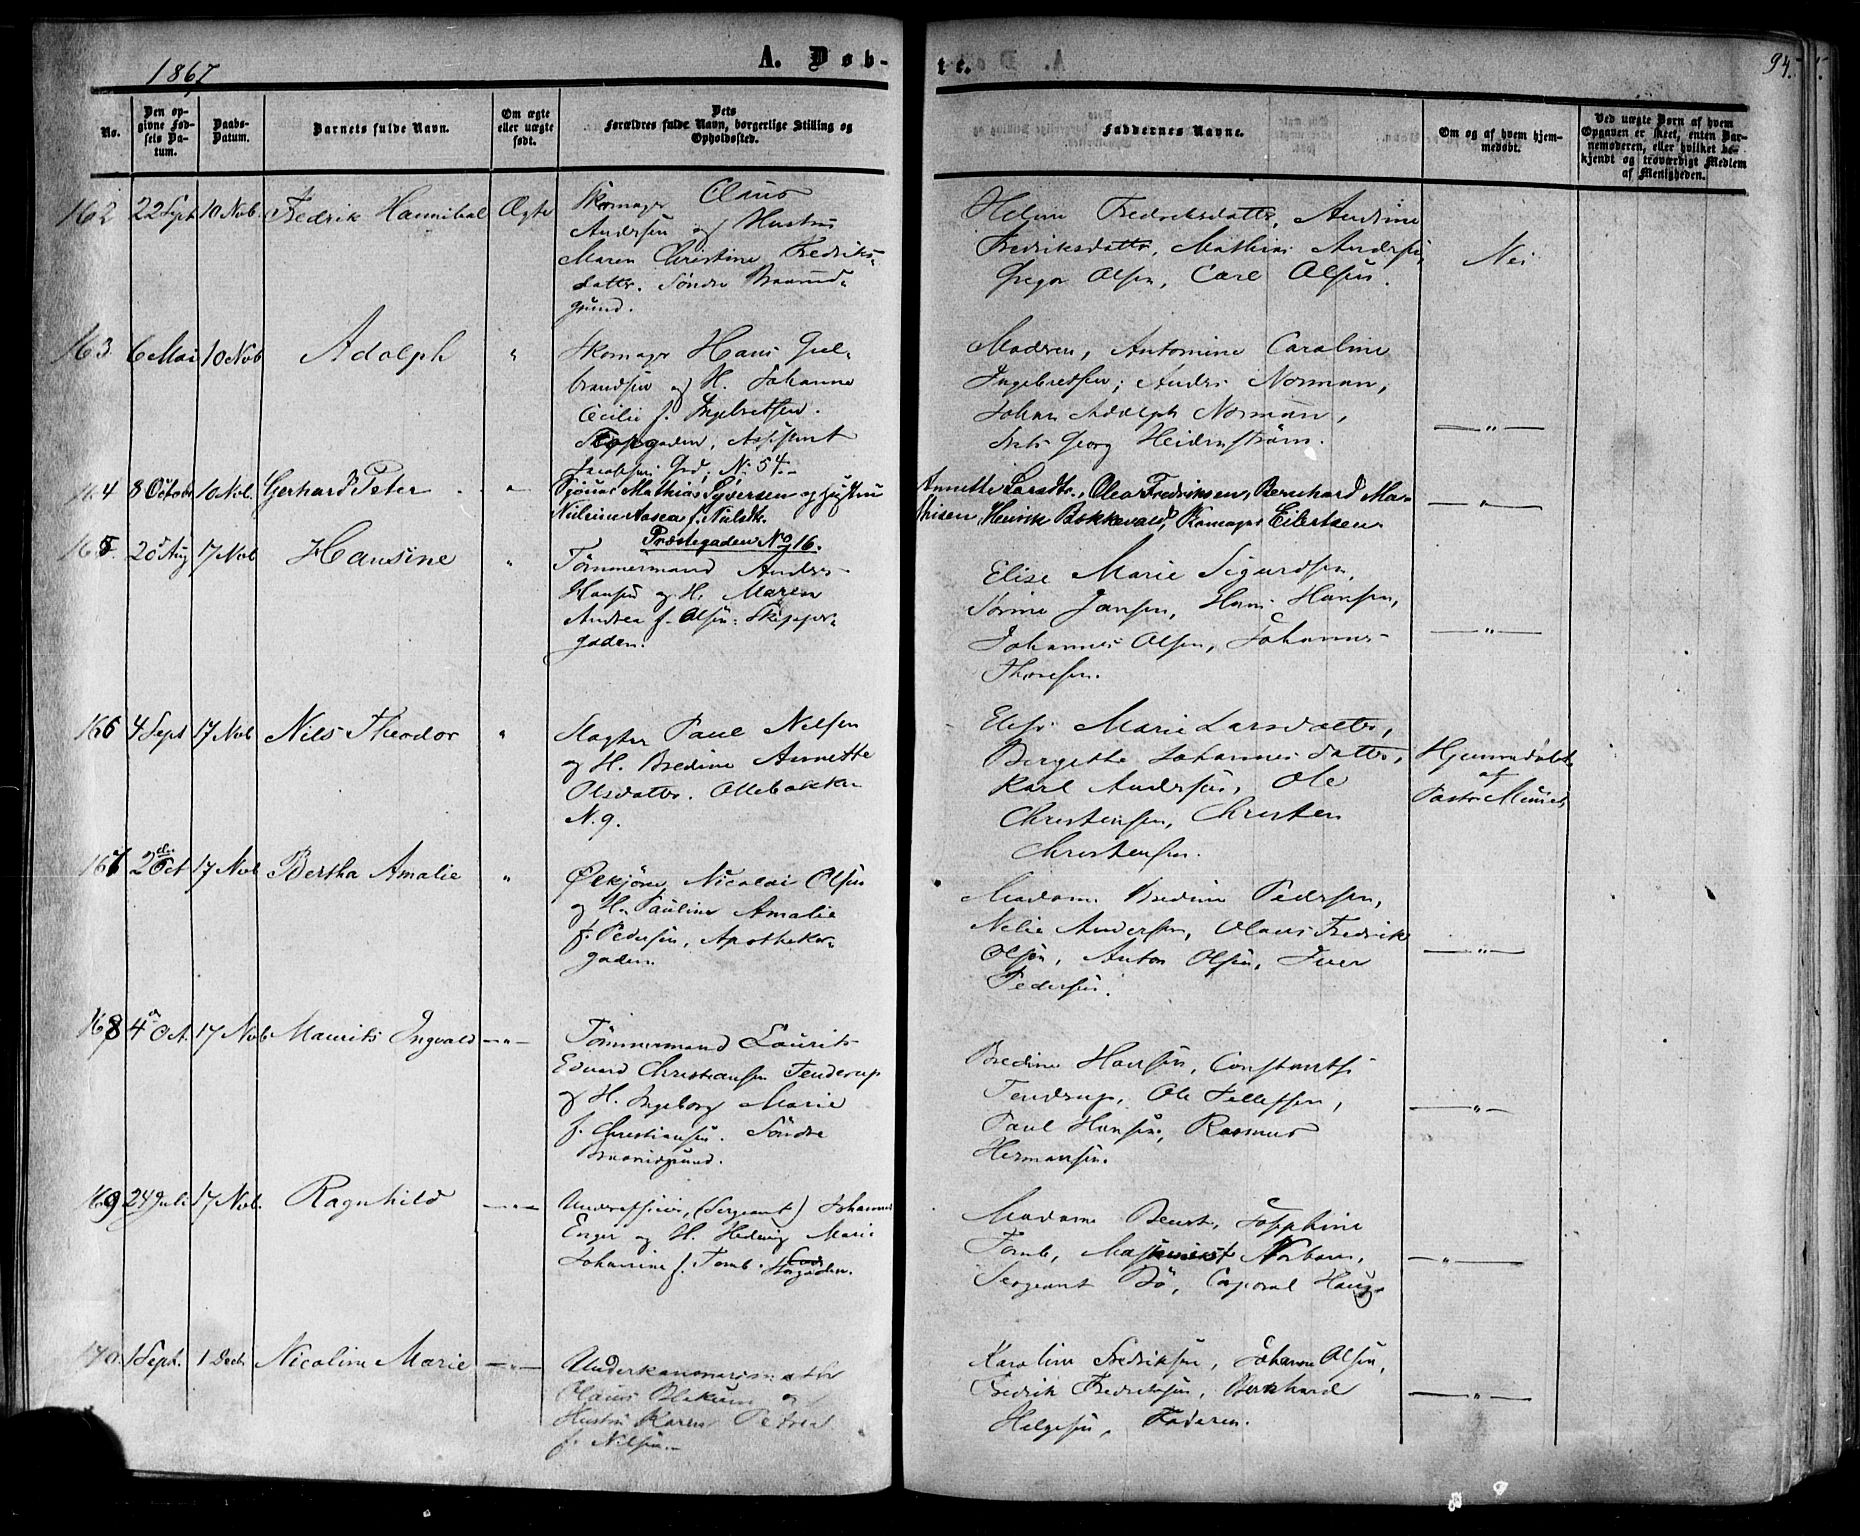 1867
A. Døb-
te.
94.
No.
Den op-
givne Fød-
sels Da-
tum.
Daabs-
Datum.
Barnets fulde Navn.
Om ægte
eller uægte
født.
Dets
Forældres fulde Navn, borgerlige Stilling og
Opholdssted.
Faddernes Navne.
Om og af hvem hjem-
medøbt.
Ved uægte Børn af hvem
Opgaven er skeet, enten Bar-
nemoderen, eller hvilket be-
kjendt og troværdigt Medlem
af Menigheden.
162 22 Sept 10 Nov Fredrik Hannibal Ægte
Skomager Claus
Andersen og Hustru
Maren Christine Fredriks-
datter. Söndre
grund.
Helene Fredriksdatter, Andrine
Fredriksdatter, Mathias Andersen,
Gregor Olsen, Carl Olsen.
Nei
163 6 Mai 10 Nov Adolph "
Skomager Hans Gul-
brandsen og H. Johanne
Cecilie f. Ingebretsen.
Assistent
Jacobsens Grd. No 54.
Madsen, Antomine Caroline
Ingebretsen, Anders Norman,
Johan Adolph Norman,
Georg Heidenstrøm.
"
164 8 Octobr 10 Nov. Gerhard Peter "
Sjömd Mathias Syversen og Hustru
Nilsine Aasea f. Nielsdtr.
Præstegaden No 16.
Annette Larsdtr., Olea Fredriksen, Bernhard Ma-
thisen, Henrik Bokkevald, Eilertsen
"
165 20 Aug 17 Nov Hansine "
Tömmermand Anders
Hansen og H. Maren
Andrea f. Olsen. Skipper-
gaden.
Elise Marie Sigurdsen,
Sörine Jansen, Hans Hansen,
Johannes Olsen, Johannes
Thoresen.
"
166 4 Sept 17 Nov Nils Theodor "
Slagter Paul Nilsen
og H. Bredine Annette
Olsdatter. Ollebakken
N. 9.
Elise Marie Larsdatter,
Bergette Johannesdatter,
Karl Andersen, Ole
Christensen, Christen
Christensen.
Hjemmedøbt
af
Pastor
167 2den Oct 17 Nov Bertha Amalie "
Nicolai Olsen
og H. Pauline Amalie
f. Pedersen, Apotheker-
gaden.
Madame Bredine Pedersen,
Nelie Andersen, Olaus Fredrik
Olsen, Anton Olsen, Iver
Pedersen.
"
168 4 Oct. 17 Nov Maurits Ingvald "
Tömmermand Laurits
Edvard Christiansen Tenderup
og H. Ingeborg Marie
f. Christiansen. Söndre
Bredine Hansen, Constantse
Tendrup, Ole Tellefsen,
Paul Hansen, Rasmus
Hermansen.
"
169 24 Juli 17 Nov. Ragnhild "
Underofficier, (Sergeant) Johannes
Enger og H. Hedevig Marie
Johannine f. Tomb. Storgaden.
Madame Beust, Josephine
Tomb, Maskinist Norbom,
Sergeant Bö, Corporal Haug.
"
170. 1 Sept. 1 Decb. Nicoline Marie "
Underkanonermester
Olaus og
Hustru Karen Petrea
f. Nilsen.
Karoline Fredriksen, Johanne Olsen,
Fredrik Fredriksen, Bernhard
Helgesen, Faderen.
"